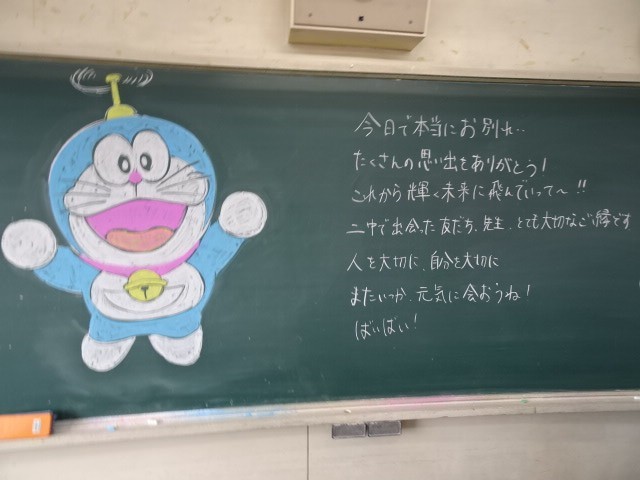 今日で本当にお別れ..
たくさんの思い出をありがとう!
これから輝く未来に飛んでいって～!!
二中で出会った友だち、先生、とても大切なご縁です
人を大切に、自分を大切に
またいつか、元気に会おうね!
ばいばい!